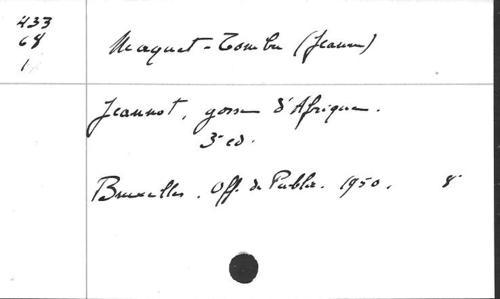 433
68
1
Maquet-Tombu (Jeanne)
Jeannot, gosse d'Afrique.
3e ed.
Bruxelles. Off. de Public. 1950. 8°